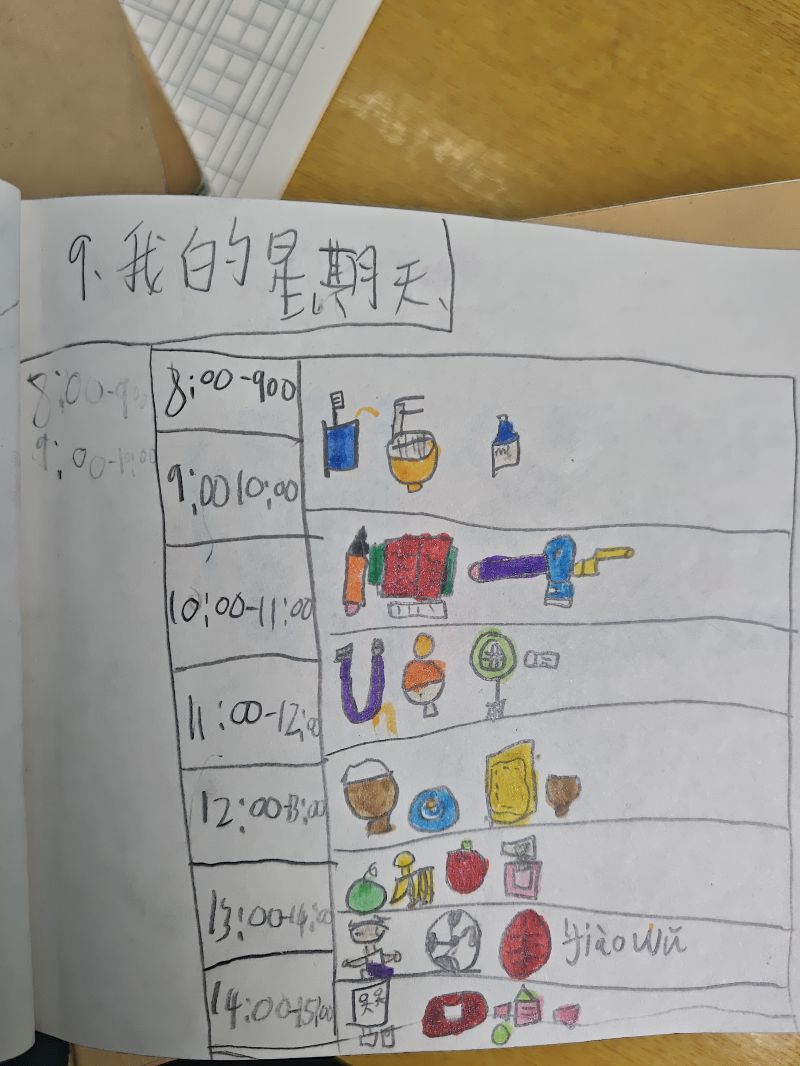 9、我的星期天、
8:00-900
8:00-900
9:00-10:00
9:0010:00
10:00-11:00
11:00-12:00
12:00-13:00
13:00-14:00
14:00-15:00
tiào wǔ